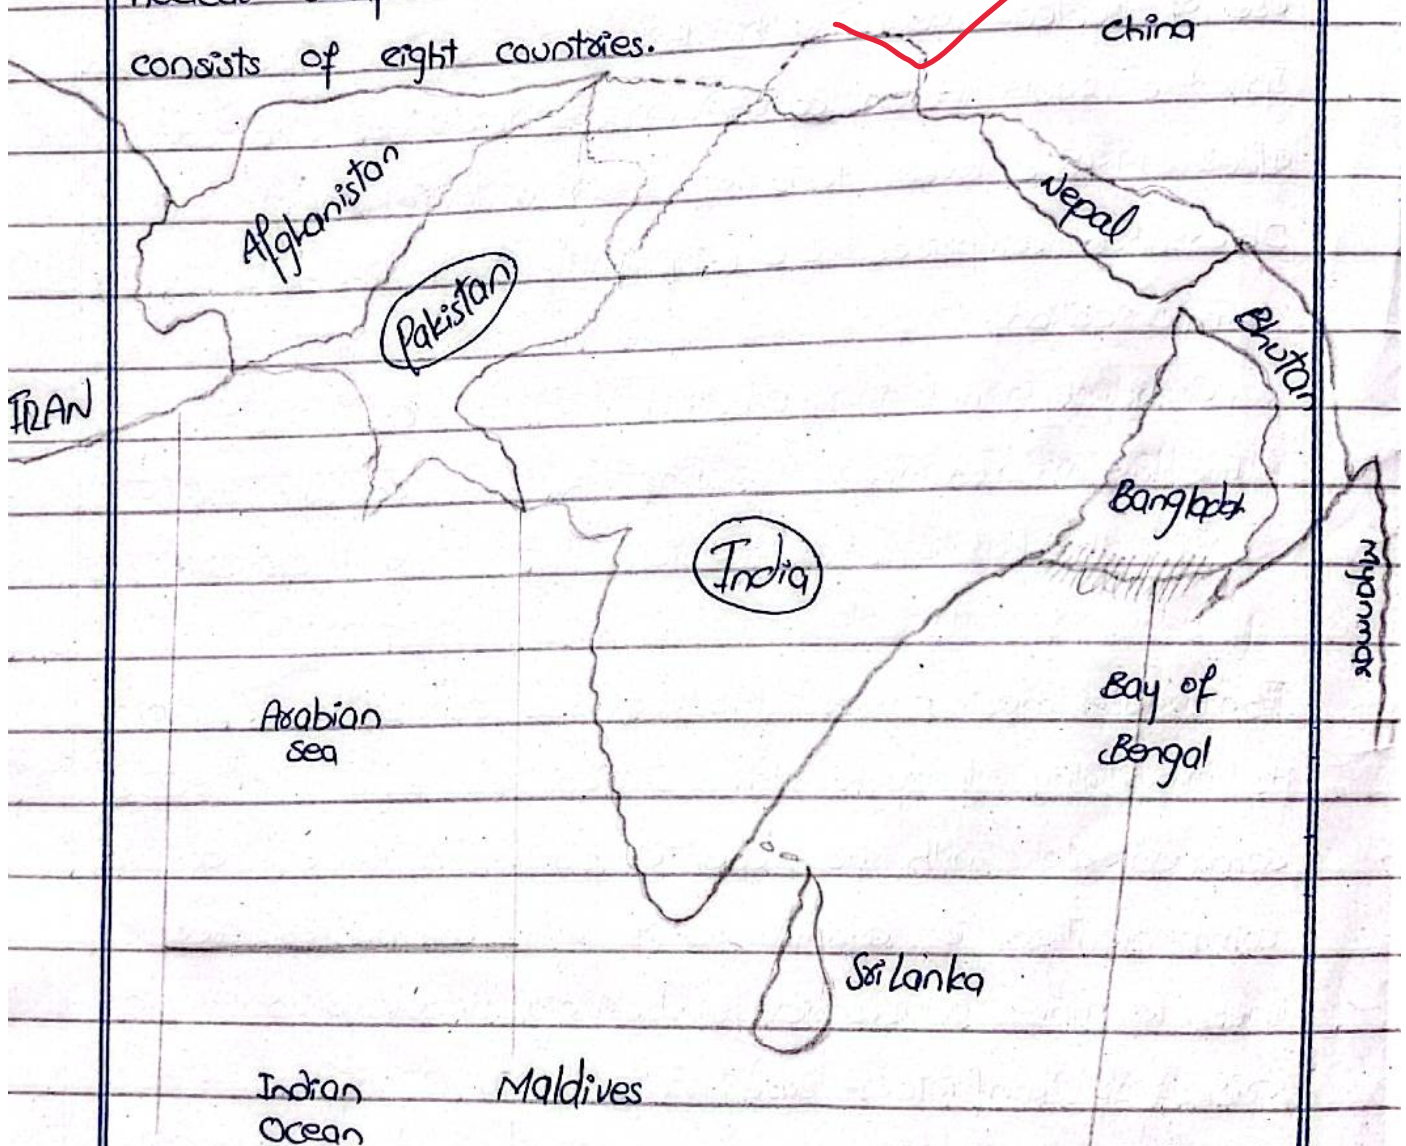 consists of eight countries.
China
Afghanistan
Nepal
Pakistan
Bhutan
IRAN
Bangladesh
India
Myanmar
Bay of
Bengal
Arabian
sea
Sri Lanka
Indian
Ocean
Maldives